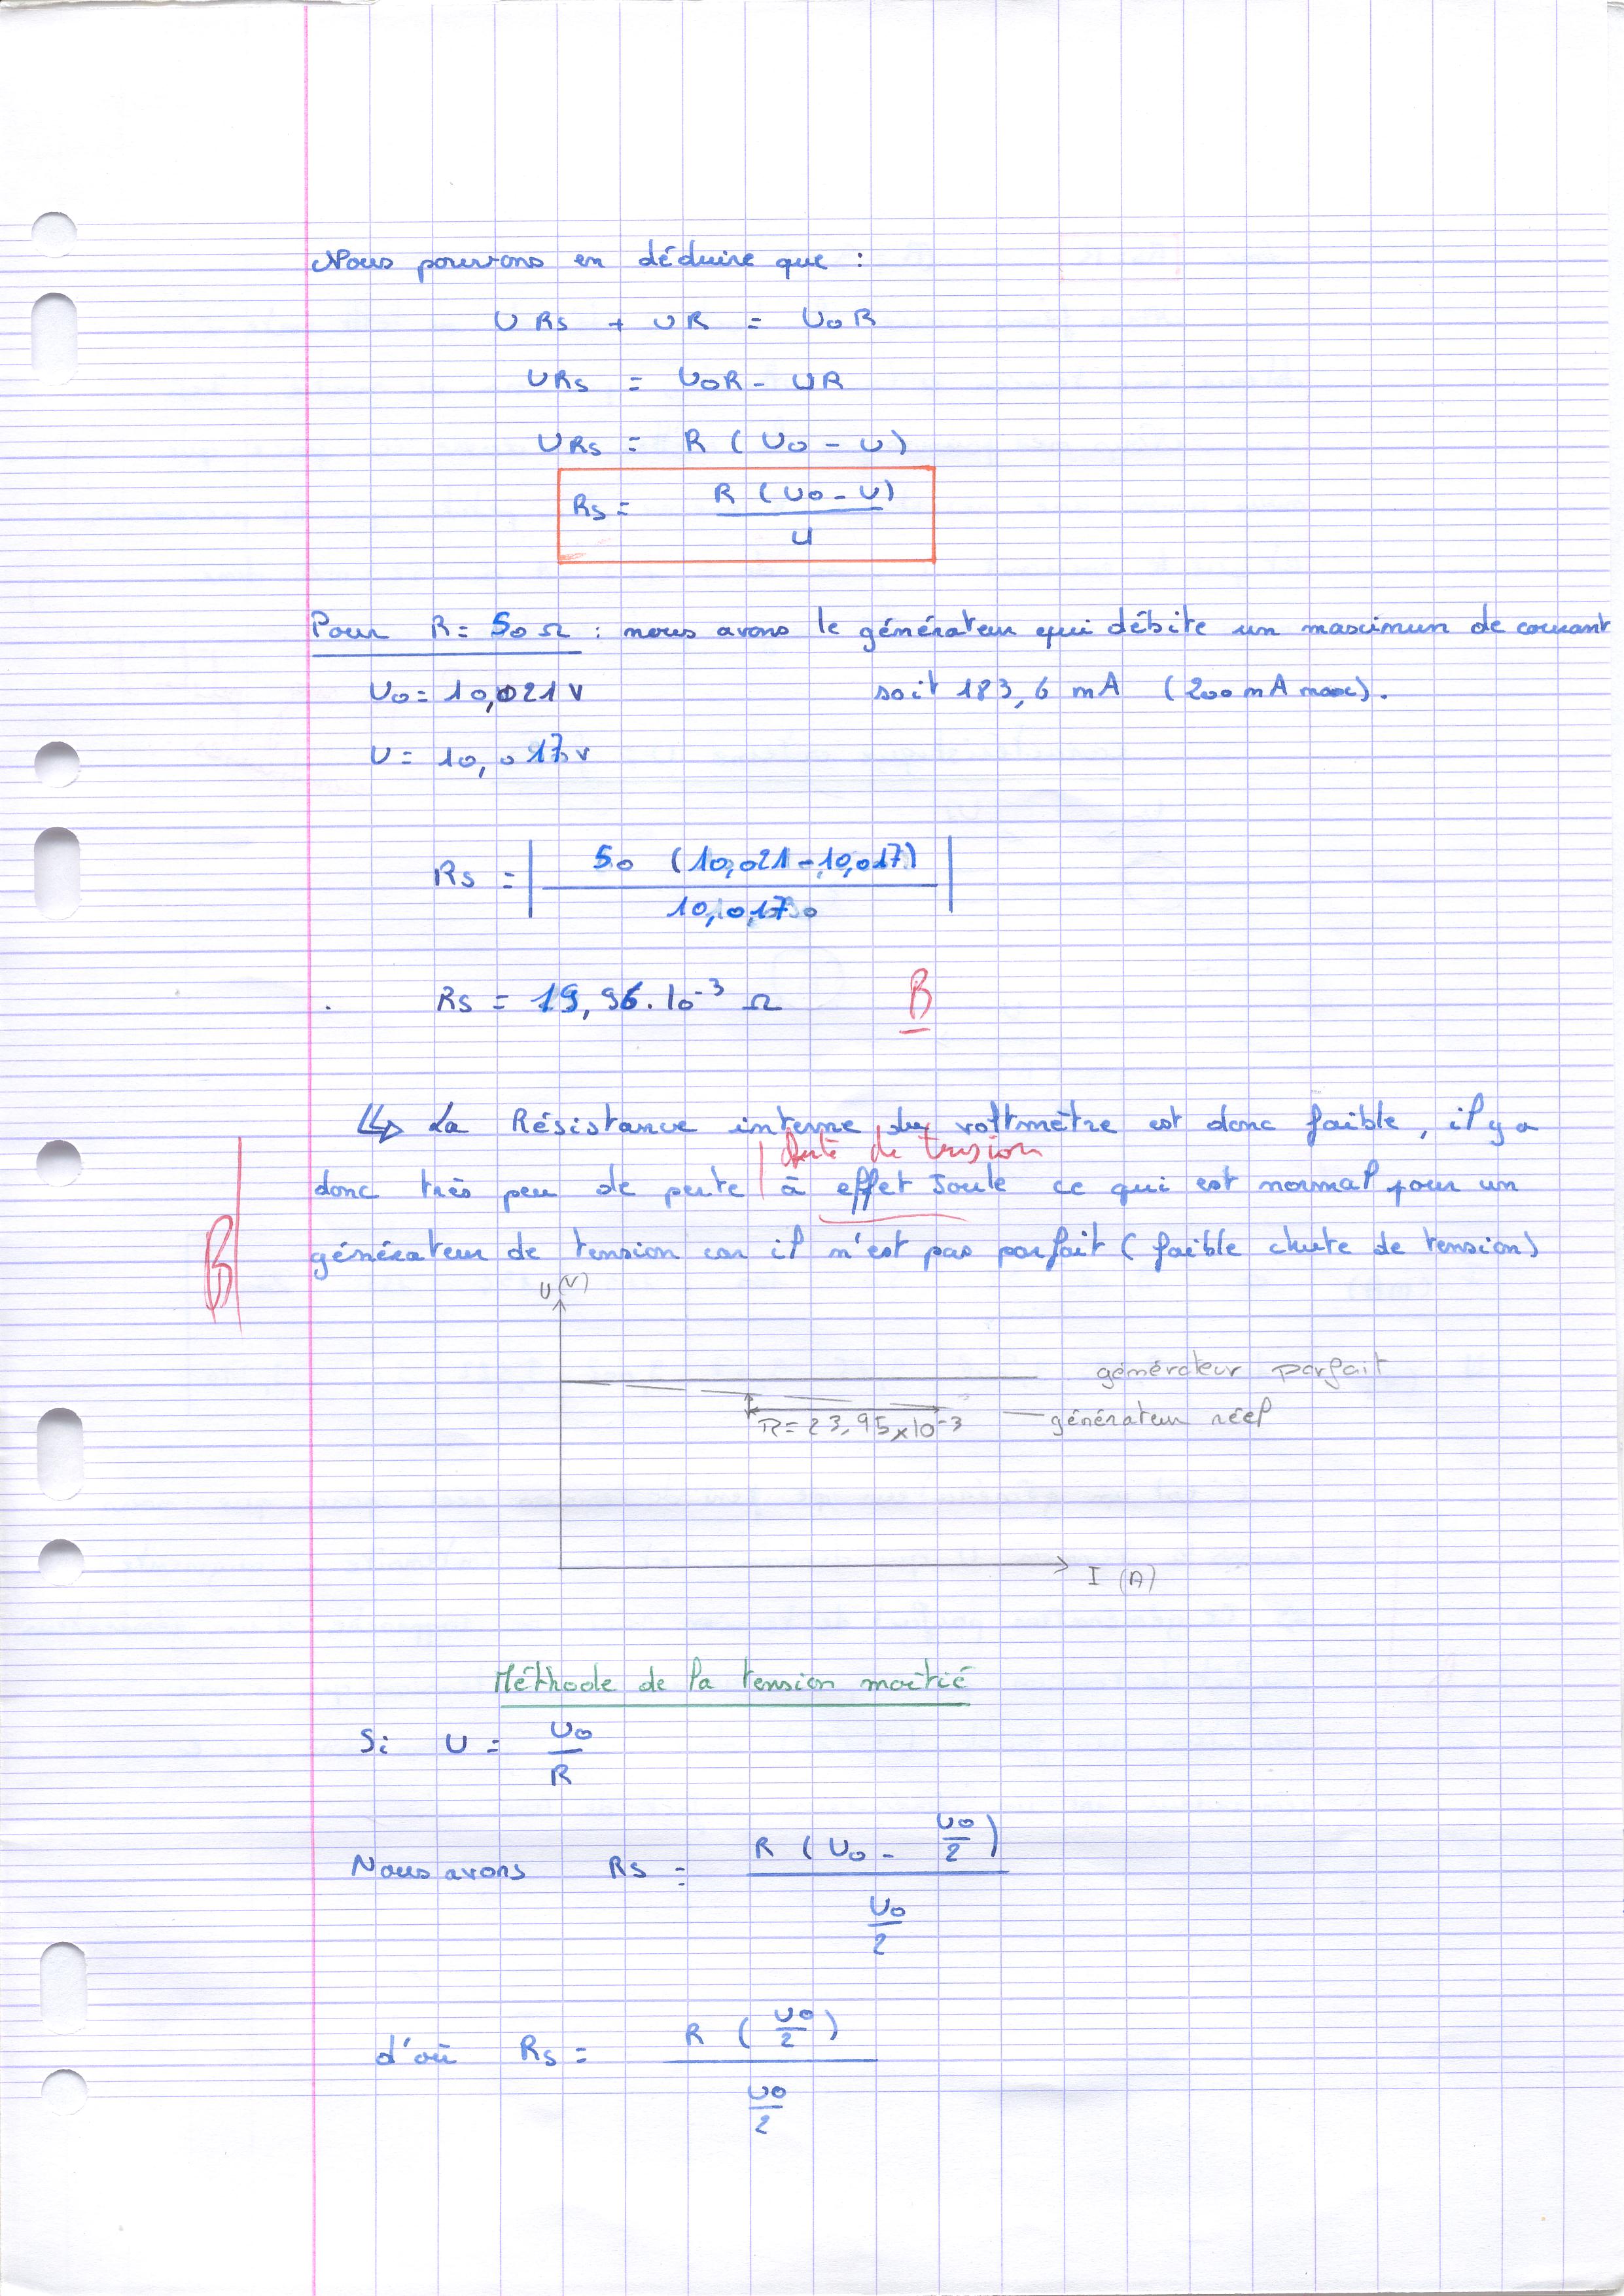 Nous pouvons en déduire que :
U RS + UR = U0 R
URS = U0R - UR
URS = R (U0 - U)
RS = R (U0 - U) / U
Pour R = 50 Ω : nous avons le générateur qui débite un maximum de courant
U0 = 10,021 V soit 183,6 mA (200 mA max).
U = 10,017 V
RS = | 50 (10,021 - 10,017) / 10,017 |
RS = 19,96.10-3 Ω B
↳ La Résistance interne du voltmètre est donc faible, il y a
de tension
donc très peu de perte à effet Joule ce qui est normal pour un
B
générateur de tension car il n'est pas parfait (faible chute de tension)
U (V)
générateur parfait
R = 23,95x10-3 générateur réel
I (A)
Méthode de la tension moitié
Si U = U0 / R
Nous avons RS = R (U0 - U0/2) / U0/2
d'où RS = R (U0/2) / U0/2